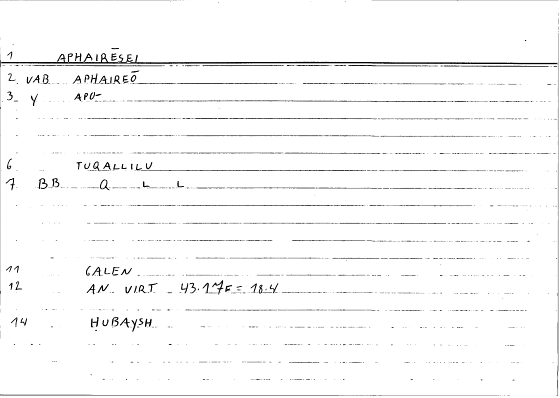 1 APHAIRĒSEI
2 VAB APHAIREŌ
3 Y APO-
6 TUQALLILU
7 BB Q L L
11 GALEN
12 AN. VIRT 43.17F = 18.4
14 HUBAYSH